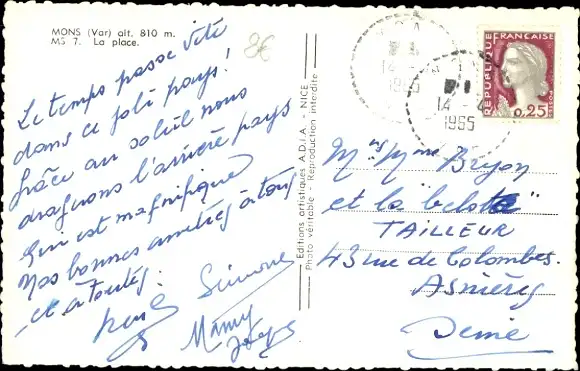 MONS (Var) alt. 810 m.
MS 7. La place.
8€
Le temps passe vite
dans ce joli pays!
Grâce au soleil nous
dragerons l'arrière pays
qui est magnifique
Nos bonnes amitiés à tous
et à toutes.
Simone
Mamy
Editions artistiques A.D.I.A. - NICE
Photo véritable - Reproduction interdite
REPUBLIQUE FRANCAISE
POSTES
0,25
14 -
1965
14 - 4
1965
Mrs Mme Bryon
et la "belote"
TAILLEUR
43 rue de Colombes.
Asnières
Seine